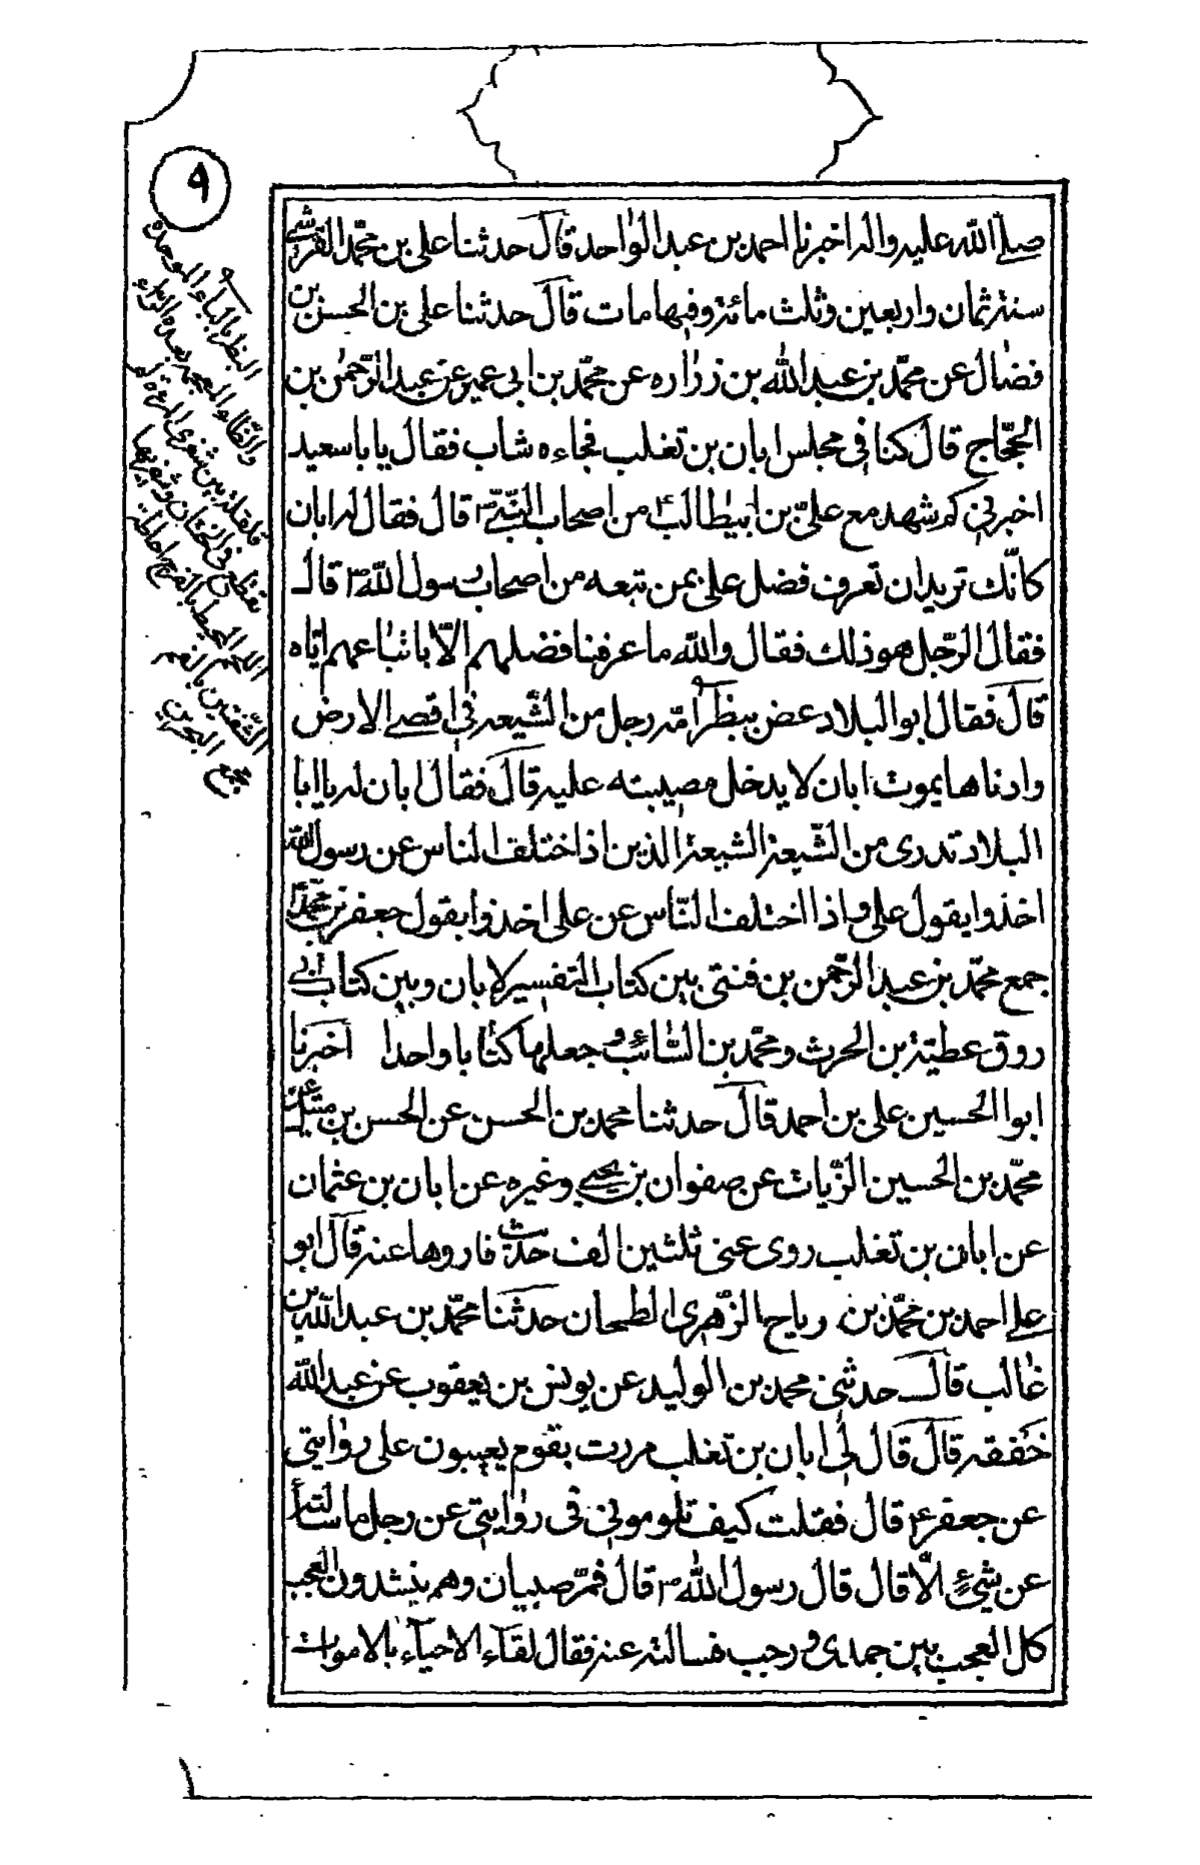 صلى الله عليه واله اخبرنا احمد بن عبد الواحد قال حدثنا علی بن محمّد القرشی
سنة ثمان واربعین وثلث مائة وفیها مات قال حدثنا علی بن الحسن بن
فضال عن محمّد بن عبد الله بن زراره عن محمّد بن ابی عمیر عن عبد الرّحمن بن
الحجّاج قال کنا فی مجلس ابان بن تغلب فجاءه شاب فقال یا باسعید
اخبرنی کم شهد مع علیّ بن ابیطالب ع من اصحاب النّبیّ ص قال فقال له ابان
کانّك ترید ان تعرف فضل علی بمن تبعه من اصحاب رسول الله ص قال
فقال الرّجل هو ذلك فقال والله ما عرفنا فضلهم الّا باتباعهم ایّاه
قال فقال ابو البلاد عض ببظر امّه رجل من الشّیعه فی اقصی الارض
وادناها یموت ابان لا یدخل مصیبته علیه قال فقال ابان له یا ابا
البلاد تدری من الشّیعة الشیعة الذین اذا اختلف الناس عن رسول الله
اخذوا بقول علی واذا اختلف النّاس عن علی اخذوا بقول جعفر بن محمّد ع
جمع محمّد بن عبد الرّحمن بن فنتی بین کتاب التفسیر لابان وبین کتاب ابی
روق عطیّة بن الحرث ومحمّد بن السّائب وجعلها کتابا واحدا اخبرنا
ابوا الحسین علی بن احمد قال حدثنا محمد بن الحسن عن الحسن بن متیل عن
محمّد بن الحسین الزّیات عن صفوان بن یحیی وغیره عن ابان بن عثمان
عن ابان بن تغلب روی عنی ثلثین الف حدیث فاروها عنه قال ابو
علی احمد بن محمّد بن ریاح الزّهری الطحان حدثنا محمّد بن عبد الله بن
غالب قال حدثنی محمد بن الولید عن یونس بن یعقوب عن عبد الله
خفقه قال قال لی ابان بن تغلب مررت بقوم یعیبون علی روایتی
عن جعفر ع قال فقلت کیف تلومونی فی روایتی عن رجل ما سالته
عن شیءٍ الّا قال قال رسول الله ص قال فمرّ صبیان وهم ینشدون العجب
کل العجب بین جمادی ورجب فسالته عنه فقال لقاء الاحیاء بالاموات
٩
البظر بالباء الموحدة
والظّاء المعجمه بعده الراء
بین شفری المرءة
تقطع فی الختان
اللحم المحیط بالفرج احاطة
الشّفتین بالفم
مجمع البحرین